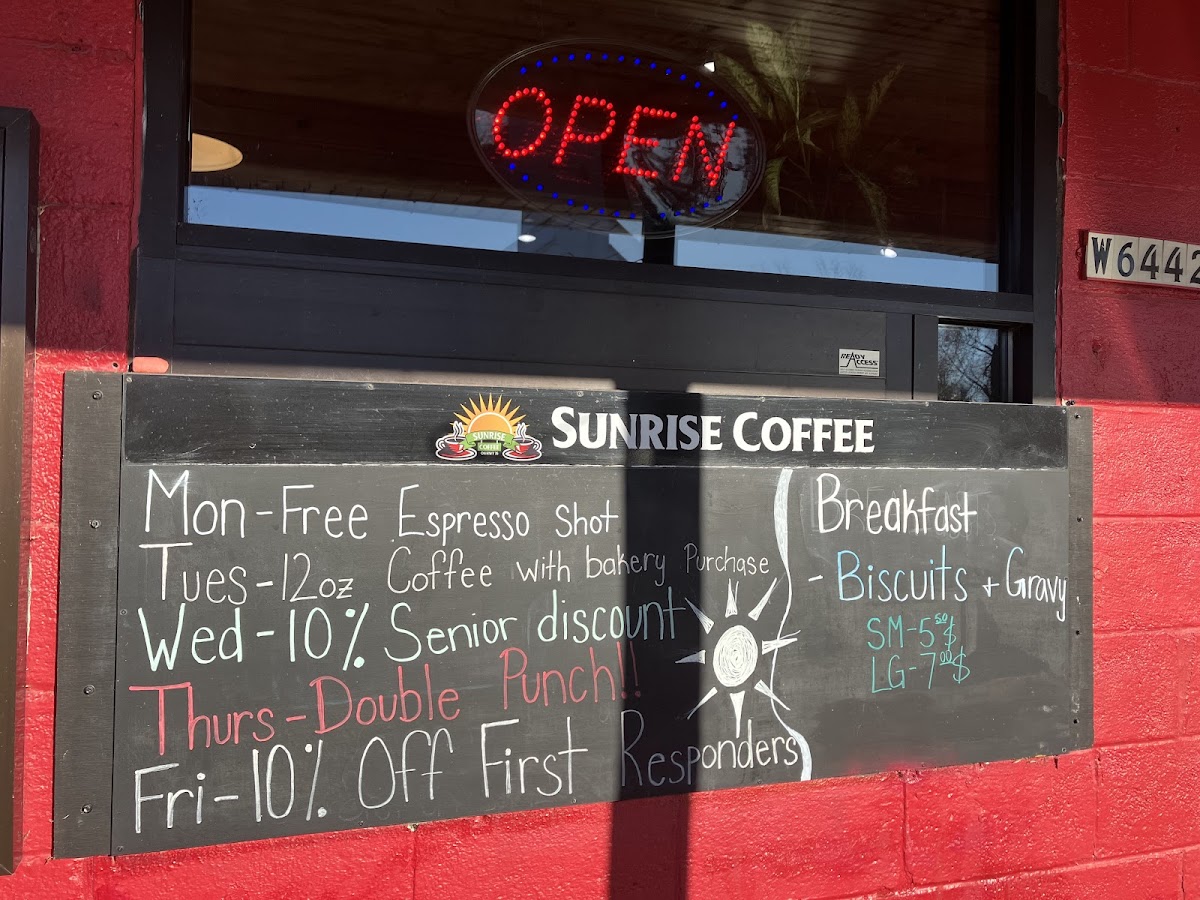 OPEN
W6442
READY ACCESS
SUNRISE COFFEE
SUNRISE COFFEE
Mon-Free Espresso Shot
Tues-12oz Coffee with bakery Purchase
Wed-10% Senior discount
Thurs-Double Punch!!
Fri-10% Off First Responders
Breakfast
- Biscuits + Gravy
SM-5⁵⁰$
LG-7⁰⁰$